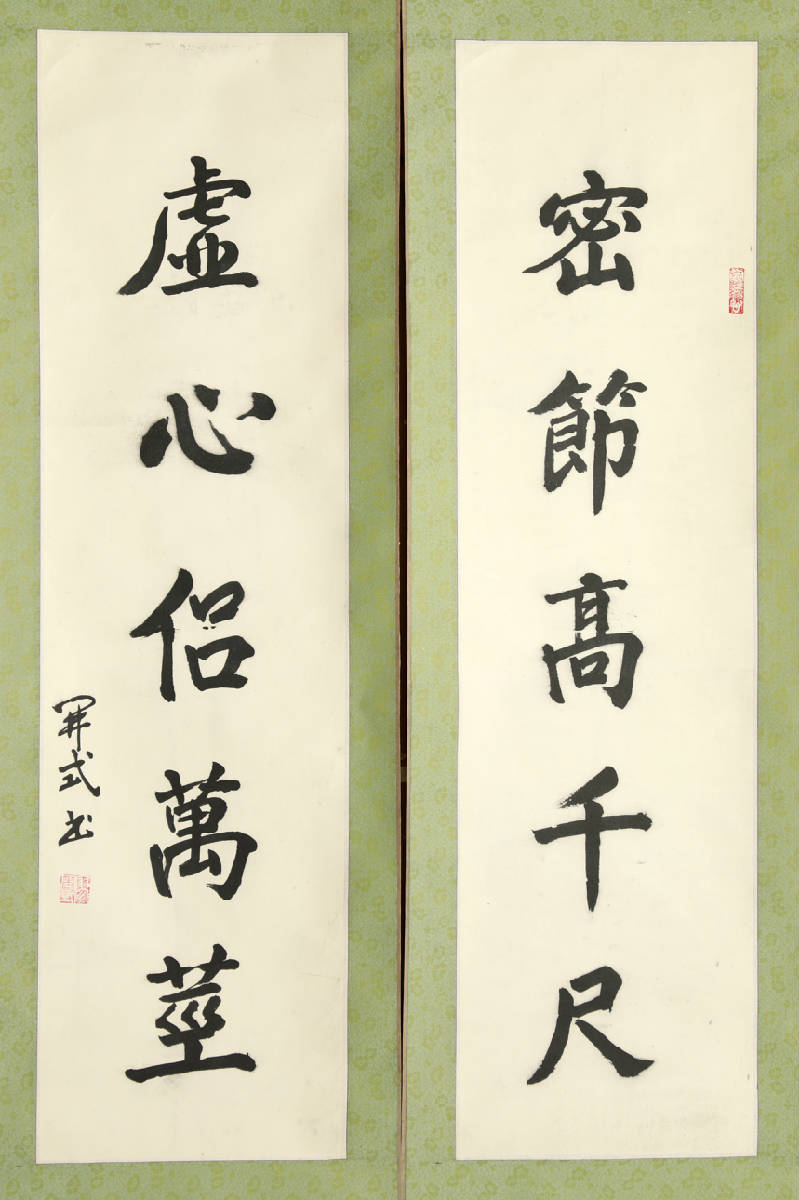 密節高千尺
虛心侶萬莖
開式书